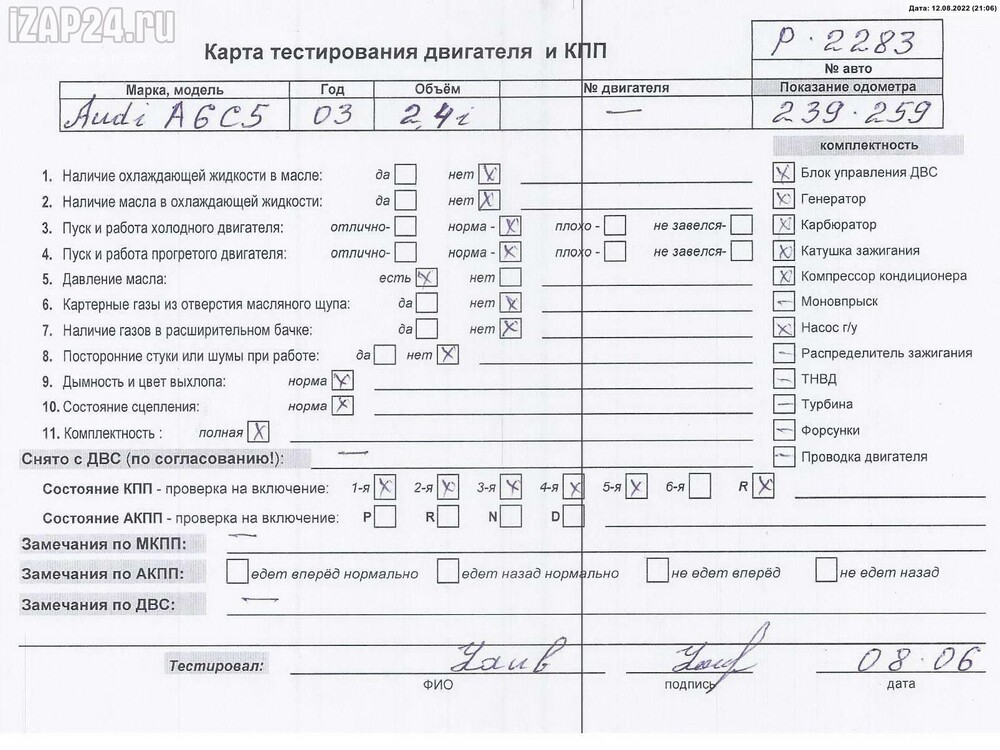 Дата: 12.08.2022 (21:06)
iZAP24.ru
Карта тестирования двигателя и КПП
P · 2283
№ авто
Марка, модель Год Объём № двигателя Показание одометра
Audi A6C5 03 2,4i — 239 · 259
комплектность
1. Наличие охлаждающей жидкости в масле: да нет X
2. Наличие масла в охлаждающей жидкости: да нет X
3. Пуск и работа холодного двигателя: отлично- норма - X плохо - не завелся-
4. Пуск и работа прогретого двигателя: отлично- норма - X плохо - не завелся-
5. Давление масла: есть X нет
6. Картерные газы из отверстия масляного щупа: да нет X
7. Наличие газов в расширительном бачке: да нет X
8. Посторонние стуки или шумы при работе: да нет X
9. Дымность и цвет выхлопа: норма X
10. Состояние сцепления: норма X
11. Комплектность : полная X
X Блок управления ДВС
X Генератор
X Карбюратор
X Катушка зажигания
X Компрессор кондиционера
— Моновпрыск
X Насос г/у
— Распределитель зажигания
— ТНВД
— Турбина
— Форсунки
— Проводка двигателя
Снято с ДВС (по согласованию!): —
Состояние КПП - проверка на включение: 1-я X 2-я X 3-я X 4-я X 5-я X 6-я R X
Состояние АКПП - проверка на включение: P R N D
Замечания по МКПП: —
Замечания по АКПП: едет вперёд нормально едет назад нормально не едет вперёд не едет назад
Замечания по ДВС: —
Тестировал: 08 · 06
ФИО подпись дата